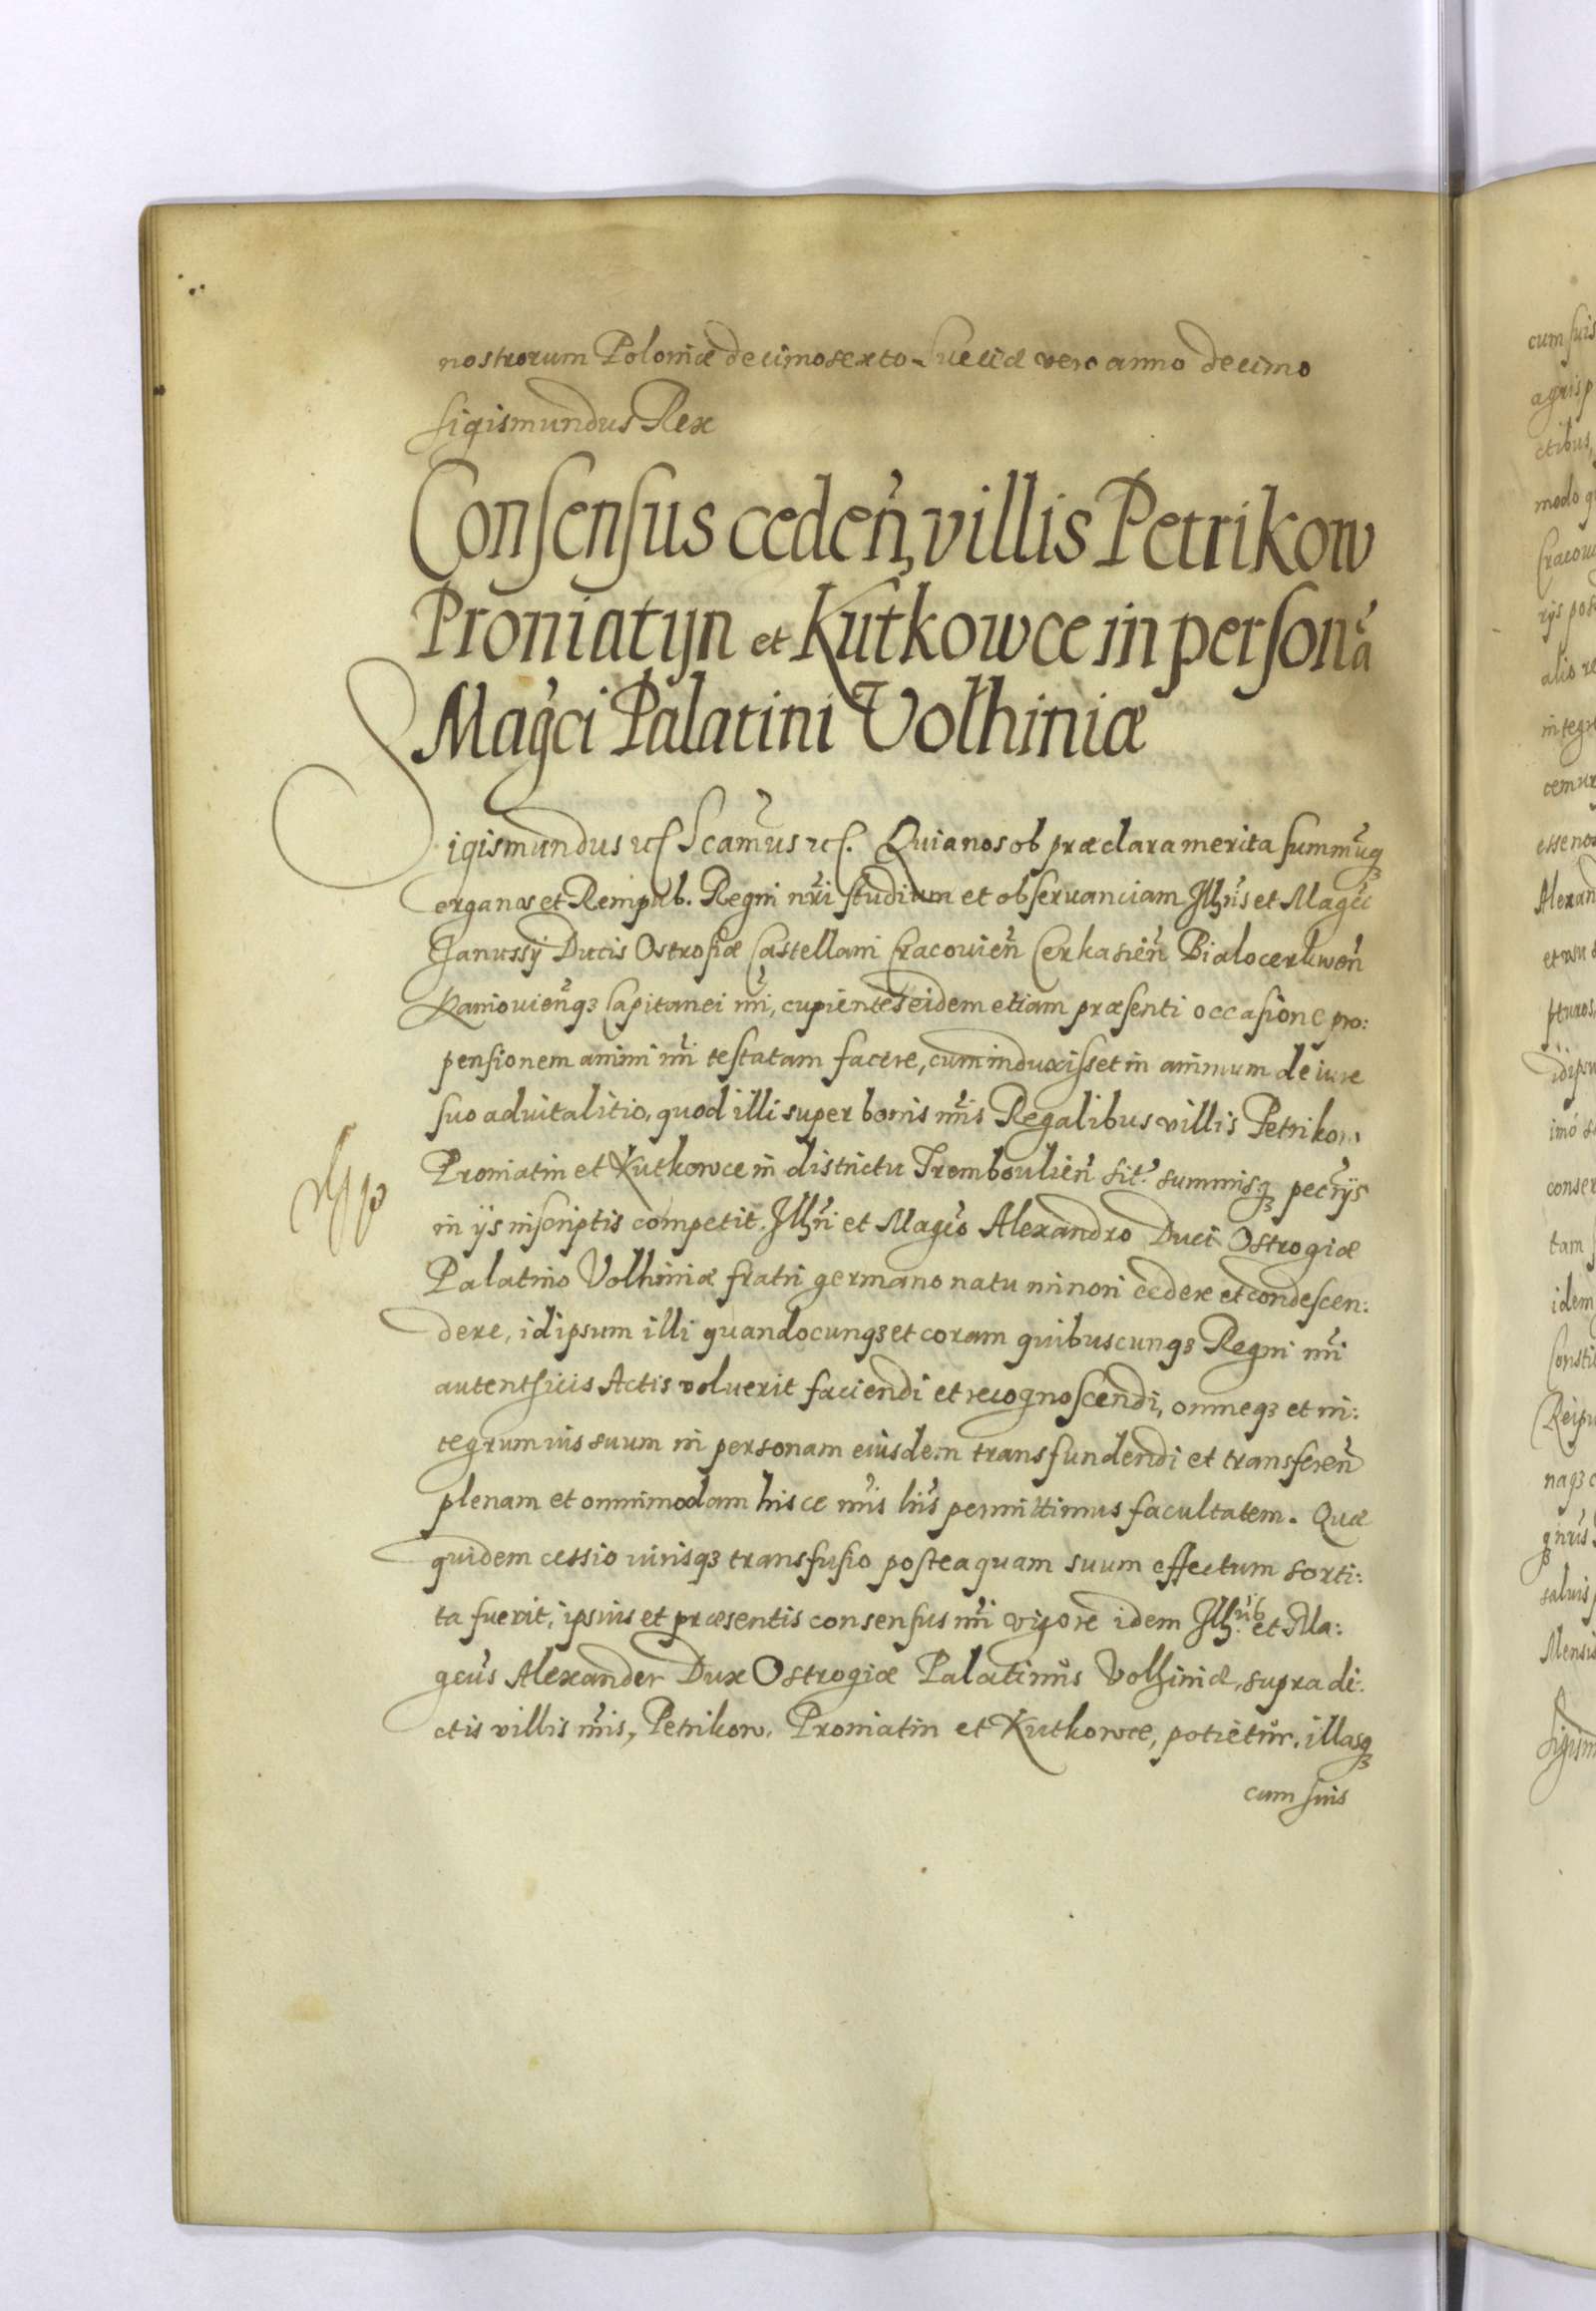 nostrorum Poloniæ decimosexto Sueciæ vero anno decimo
Sigismundus Rex
Consensus ceden̄, villis Petrikow
Proniatyn et Kutkowce in persona
Mag̃ci Palatini Volhiniæ
Sigismundus etc Scamus etc. Quia nos ob præclara merita summũq3
erga nos et Rempub. Regni nr̃i studium et obseruanciam Illris et Mag̃ci
Janussij Ducis Ostrogiæ Castellani Cracouien̄ Cerkasien̄ Bialocerkwen̄
Kaniouien̄q3 Capitanei nr̃i, cupientes eidem etiam præsenti occasione pro:
pensionem animi nr̃i testatam facere, cum induxisset in animum de iure
suo aduitalitio, quod illi super bonis nr̃is Regalibus villis Petrikow
Proniatin et Kutkowce in districtu Tremboulien̄ sit̃. summisq3 pec̃rijs
in ijs inscriptis competit. Illri et Mag̃co Alexandro Duci Ostrogiæ
Palatino Volhiniæ fratri germano natu minori cedere et condescen:
dere, idipsum illi quandocunq3 et coram quibuscunq3 Regni nr̃i
autenthicis Actis voluerit faciendi et recognoscendi, omneq3 et in:
tegrum ius suum in personam eiusdem transfundendi et transferen̄
plenam et omnimodam hisce nr̃is lr̃is permittimus facultatem. Quæ
quidem cessio iurisq3 transfusio posteaquam suum effectum sorti:
ta fuerit, ipsius et præsentis consensus nr̃i vigore idem Illris et Ma:
gcus Alexander Dux Ostrogiæ Palatinus Volhiniæ, supra di:
ctis villis nr̃is, Petrikow, Proniatin et Kutkowce, potietur, illasq3
cum suis